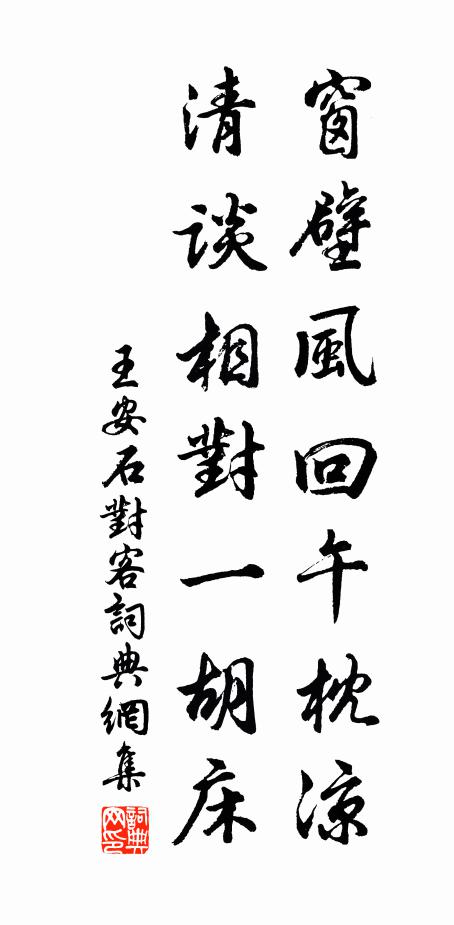 窗壁風回午枕涼
清談相對一胡床
王安石對客詞典網集
詞典網印